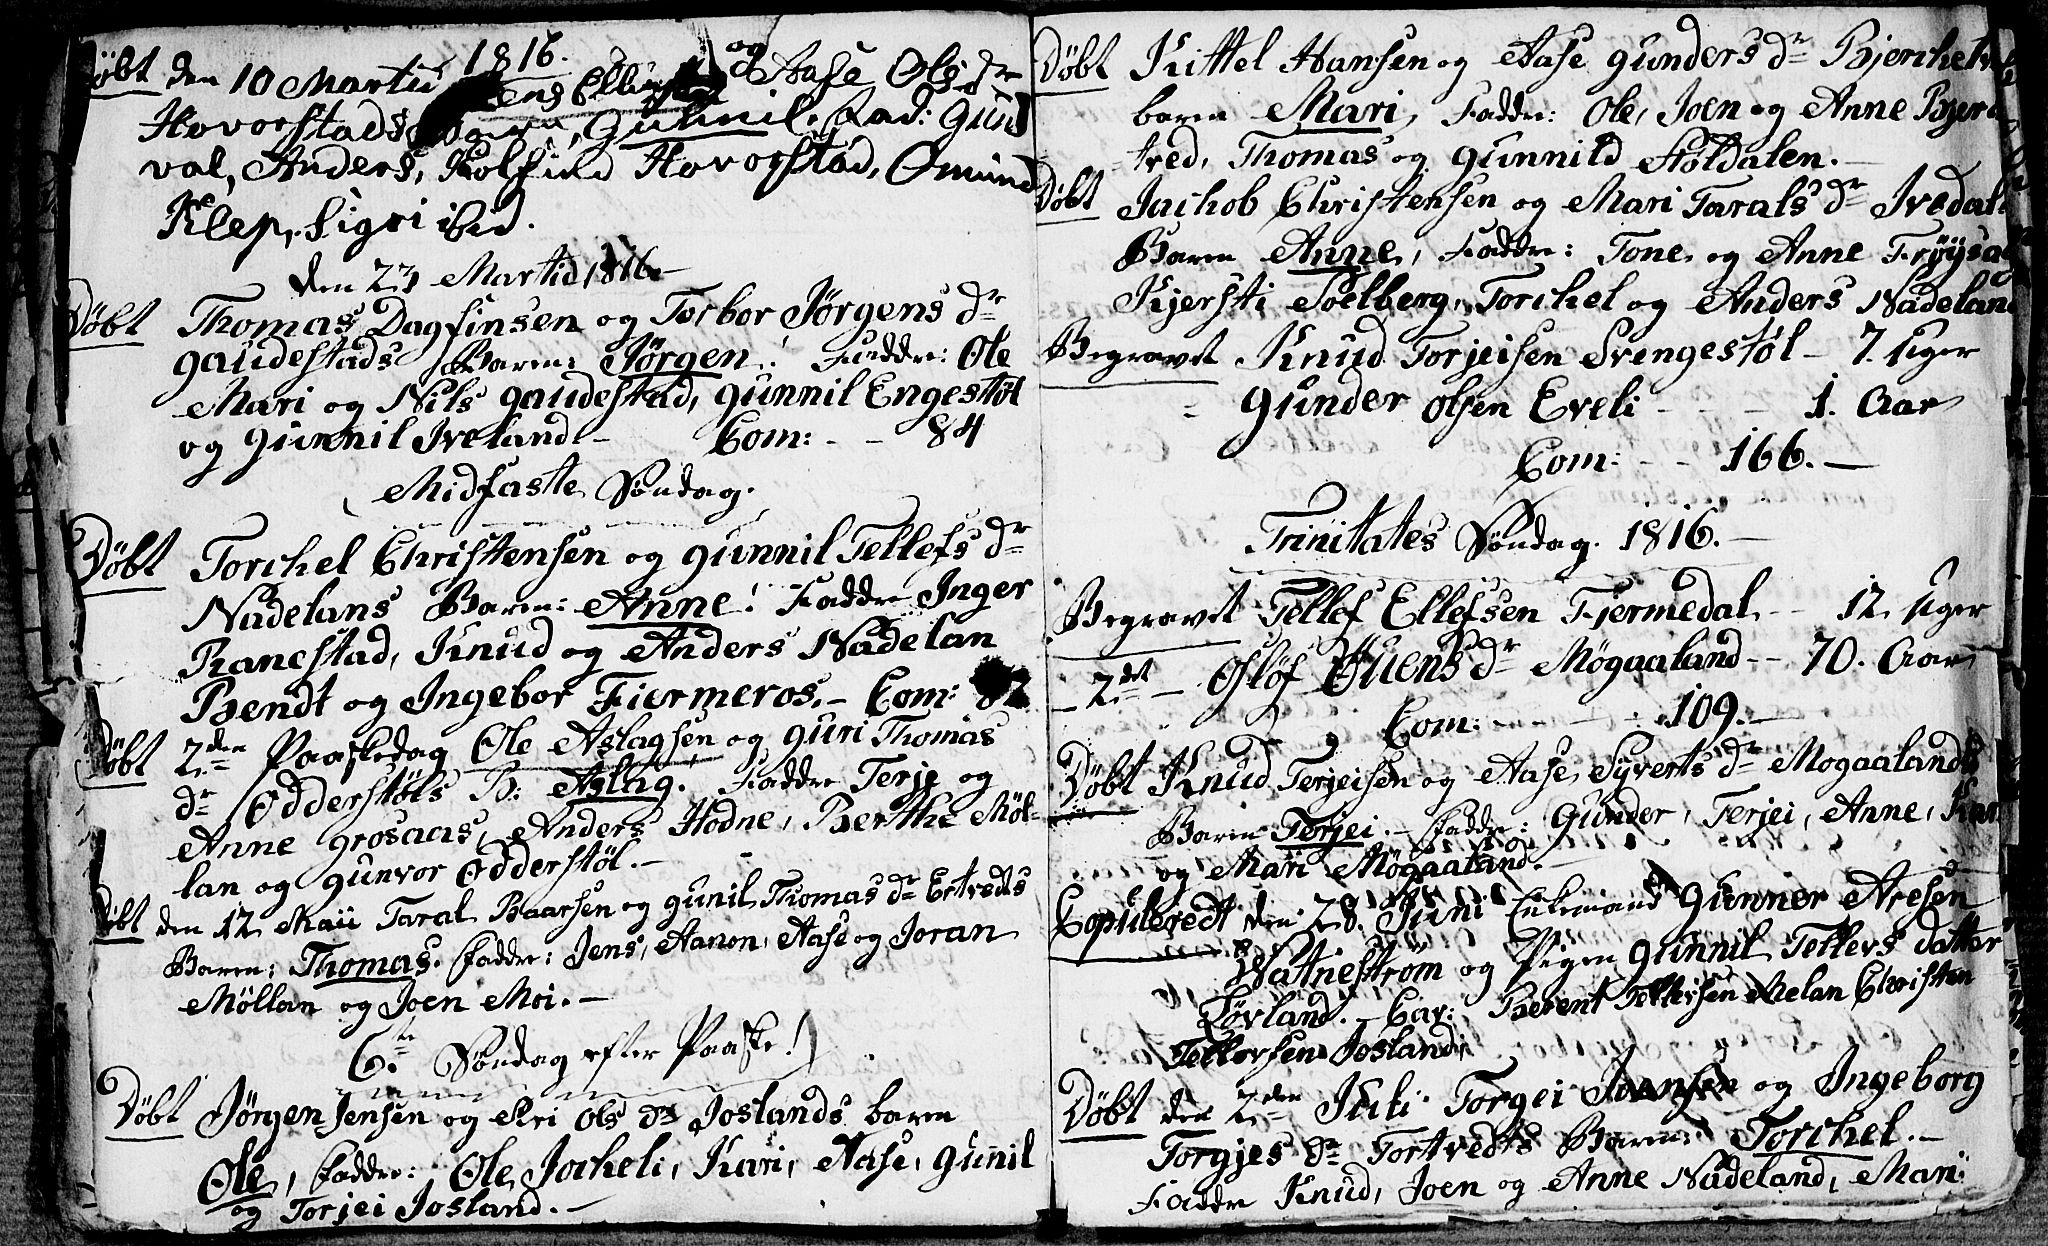 1816.
Døbt den 10 Martii Jens Ellings og Aase Ols dr
Hovorstads Barn, Gunnil. Fad: Gun
val, Anders, Rolfind Hovorstad, Omund
Klep, Sigri ibid.
den 23 Martii 1816 –
Døbt Thomas Dagfinsen og Torbor Jørgens dr
Gaudestads Baren: Jørgen: Faddre: Ole
Mari og Nils Gaudestad, Gunnil Engestøl
og Gunnil Iveland – Com: - - 84
Midfaste Søndag.
Døbt Torchel Christensen og Gunnil Tellefs dr
Nadelans Baren: Anne: Faddre Inger
Ranestad, Knud og Anders Nadelan
Bendt og Ingebor Fiermeros. – Com: 82
Døbt 2den Paaskedag Ole Aslagsen og Guri Thomas
dr Odderstøls B: Aslag. Faddre Terje og
Anne Grosaas, Anders Hodne, Berthe Møl-
lan og Gunvor Odderstøl. –
Døbt den 12 Maii Taral Baarsen og Gunil Thomas dr Ertveds
Baren: Thomas. Faddre: Jens, Aanon, Aase og Joran
Møllan og Joen Moi. –
6te Søndag efter Paaske!
Døbt Jørgen Jensen og Kri Ols dr Joslands baren
Ole, Faddre: Ole Jocheli, Kari, Aase, Gunil
og Torjei Josland. –
Døbt Kittel Hansen og Aase Gunders dr Bjerchetv
baren Mari, Faddre: Ole, Joen og Anne Bjerc
tved, Thomas og Gunnild Støldalen. –
Døbt Jachob Christensen og Mari Tarals dr Ivedal
Baren Anne, Faddre: Tone og Anne Frøysa
Kjersti Soelberg, Torchel og Anders Nadeland
Begravet Knud Torjeisen Svengestøl – 7. Uger
= Gunder Olsen Eveli - - - 1. Aar
Com: - - 166. –
Trinitates Søndag. 1816. –
Begravet Tellef Ellefsen Fjermedal - - 12 Uger
– 2det – Osløf Øuens dr Møgaaland - - 70. Aar
Com: - - - - 109. –
Døbt Knud Terjeisen og Aase Syverts dr Mogaalands
Baren Terjei. – Faddre: Gunder, Terjei, Anne, Kar
og Mari Møgaaland. –
Copuleredt den 28. Juni Enkemand Gunner Aresen
Watnestrøm og Pigen Gunnil Tellevs datter
Førland. – Cav: Berent Tellefsen Melan Christen
Tellevsen Josland,
Døbt den 2den Juli Torgei Joensen og Ingeborg
Torgjes dr Tortvedts Baren: Torchel. –
Faddre Knud, Joen og Anne Nadeland, Mari